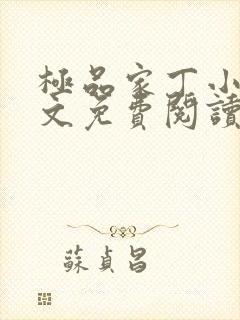 極品家丁小
文免費閱讀
蘇貞昌